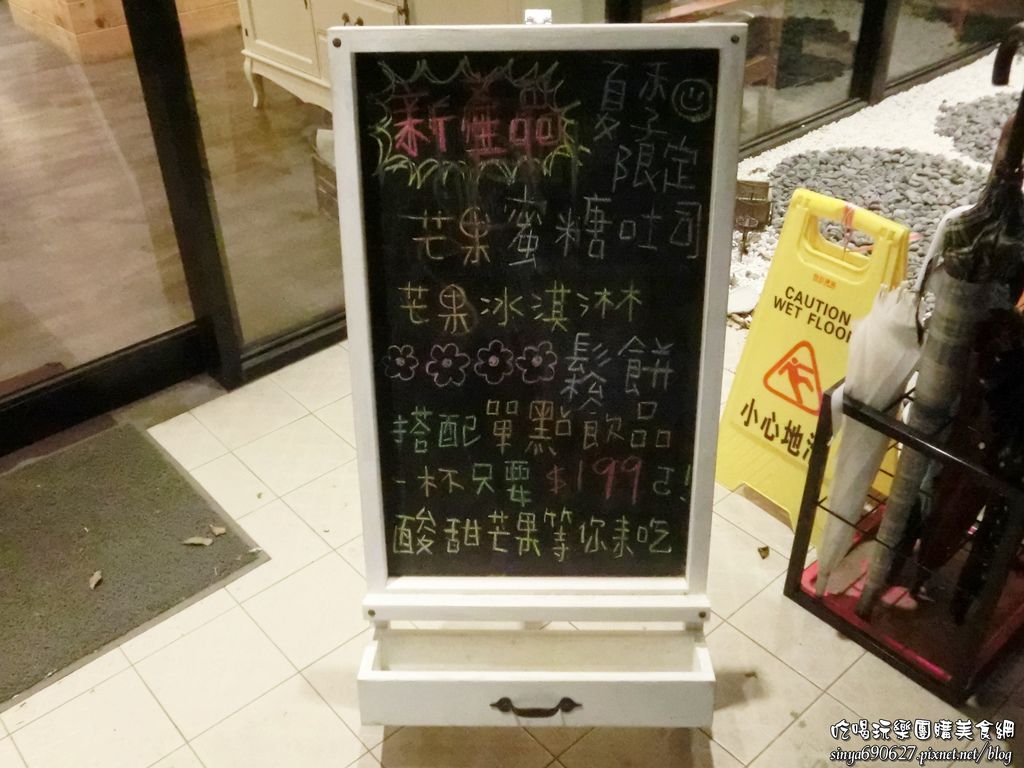 新產品
夏季
限定
芒果蜜糖吐司
芒果冰淇淋
鬆餅
搭配單點飲品
一杯只要$199ㄛ!
酸甜芒果等你來吃
CAUTION
WET FLOOR
小心地
吃喝玩樂團購美食網
sinya690627.pixnet.net/blog